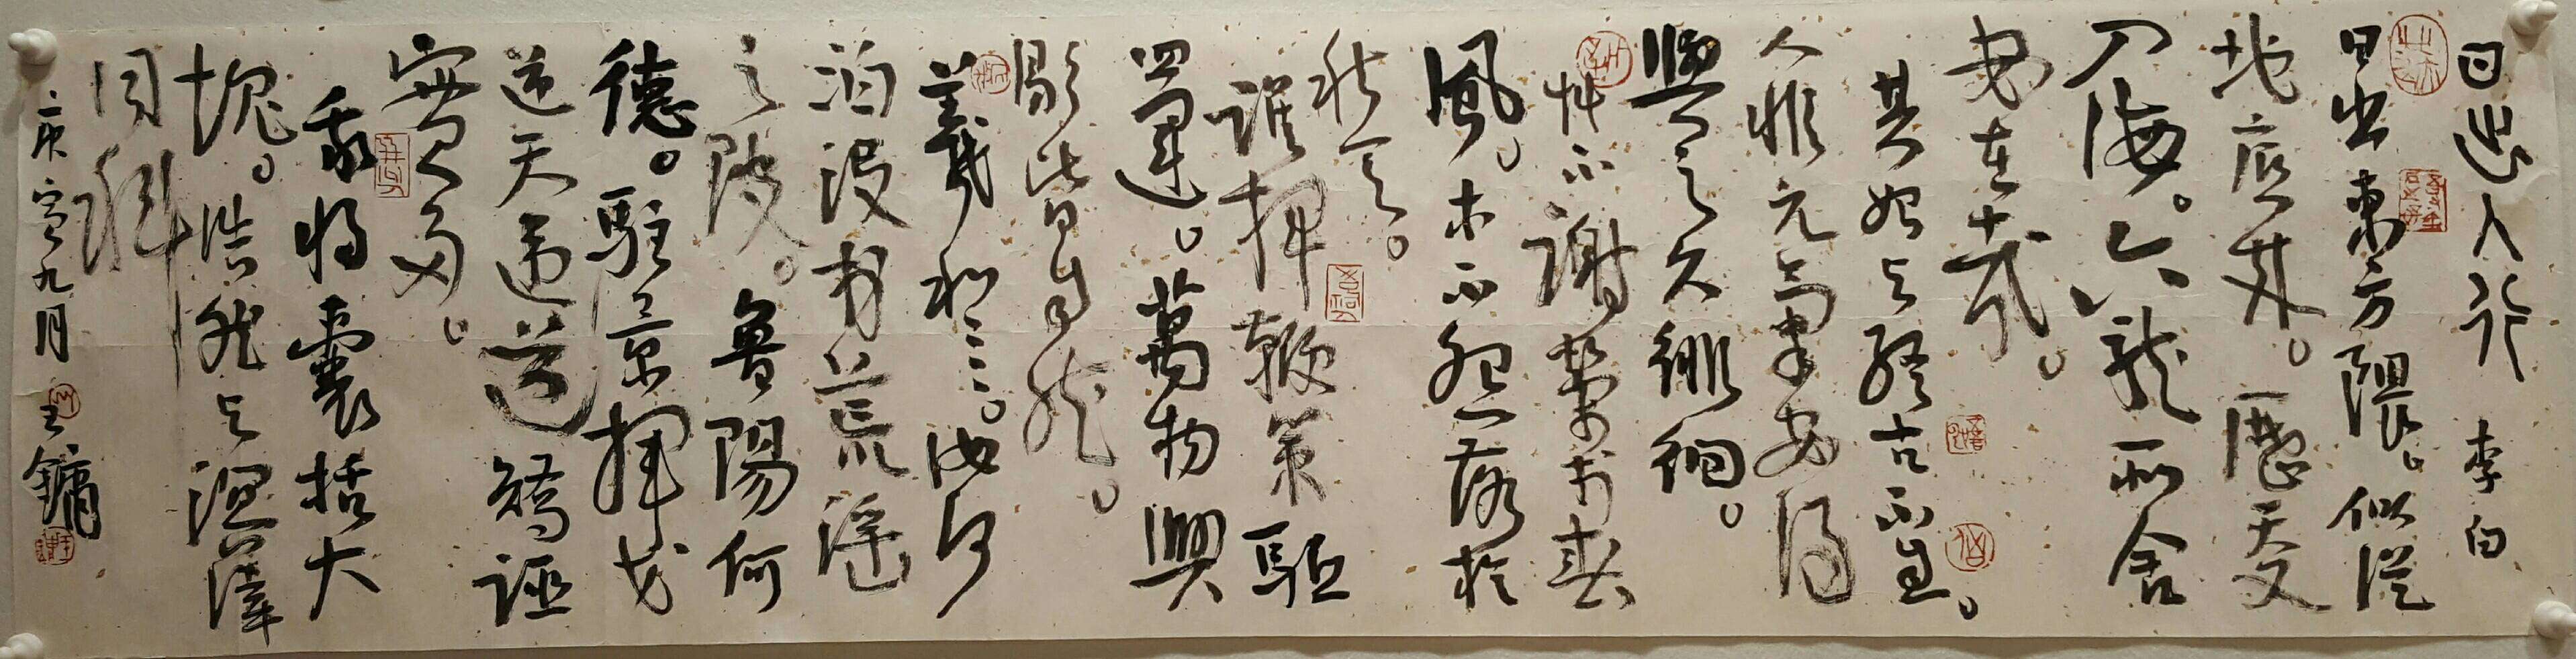 日出入行 李白
日出東方隈。似從
地底來。歷天又
入海。六龍所舍
安在哉。
其始與終古不息。
人非元氣安得
與之久徘徊。
艸不謝榮於春
風。木不怨落於
秋天。
誰揮鞭策驅
四運。萬物興
歇皆自然。
羲和〻〻。汝何
汩沒於荒淫
之波。魯陽何
德。駐景揮戈
逆天違道矯誣
實多。
吾將囊括大
塊。浩然與溟涬
同科
庚寅九月 王鏞